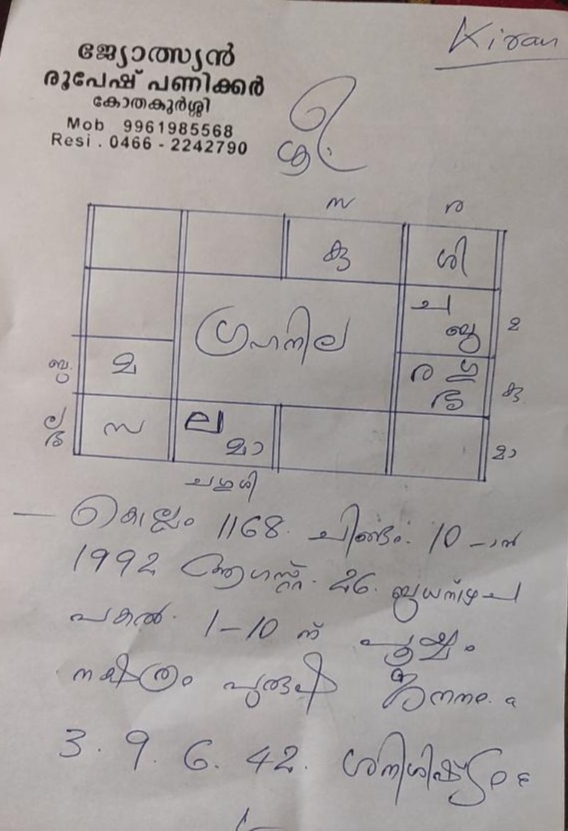 Kiran
ജ്യോത്സ്യൻ
രൂപേഷ് പണിക്കർ
കോതകുർശ്ശി
Mob 9961985568
Resi . 0466 - 2242790
ശ്രീ:
സ ര
കു ശി
ച
ബു മ
ഗ്രഹനില
ബു മ
ര ശു കു
സ ല
മാ മാ
കൊല്ലം 1168 ചിങ്ങം 10-ാൻ
1992 ആഗസ്റ്റ് 26 ബുധനാഴ്ച
പകൽ 1-10 ന് പൂയം
നക്ഷത്രം പുരുഷ ജനനം
3. 9. 6. 42. ശനിശിഷ്ടം